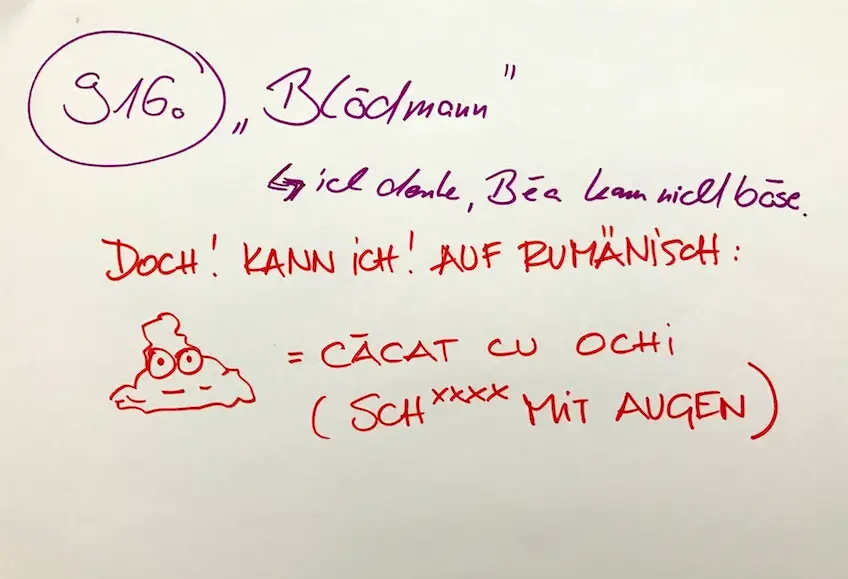 916. „Blödmann"
↳ ich denke, Bēa kann nicht böse.
DOCH! KANN ICH! AUF RUMÄNISCH:
= CĀCAT CU OCHI
(SCHxxxx MIT AUGEN)